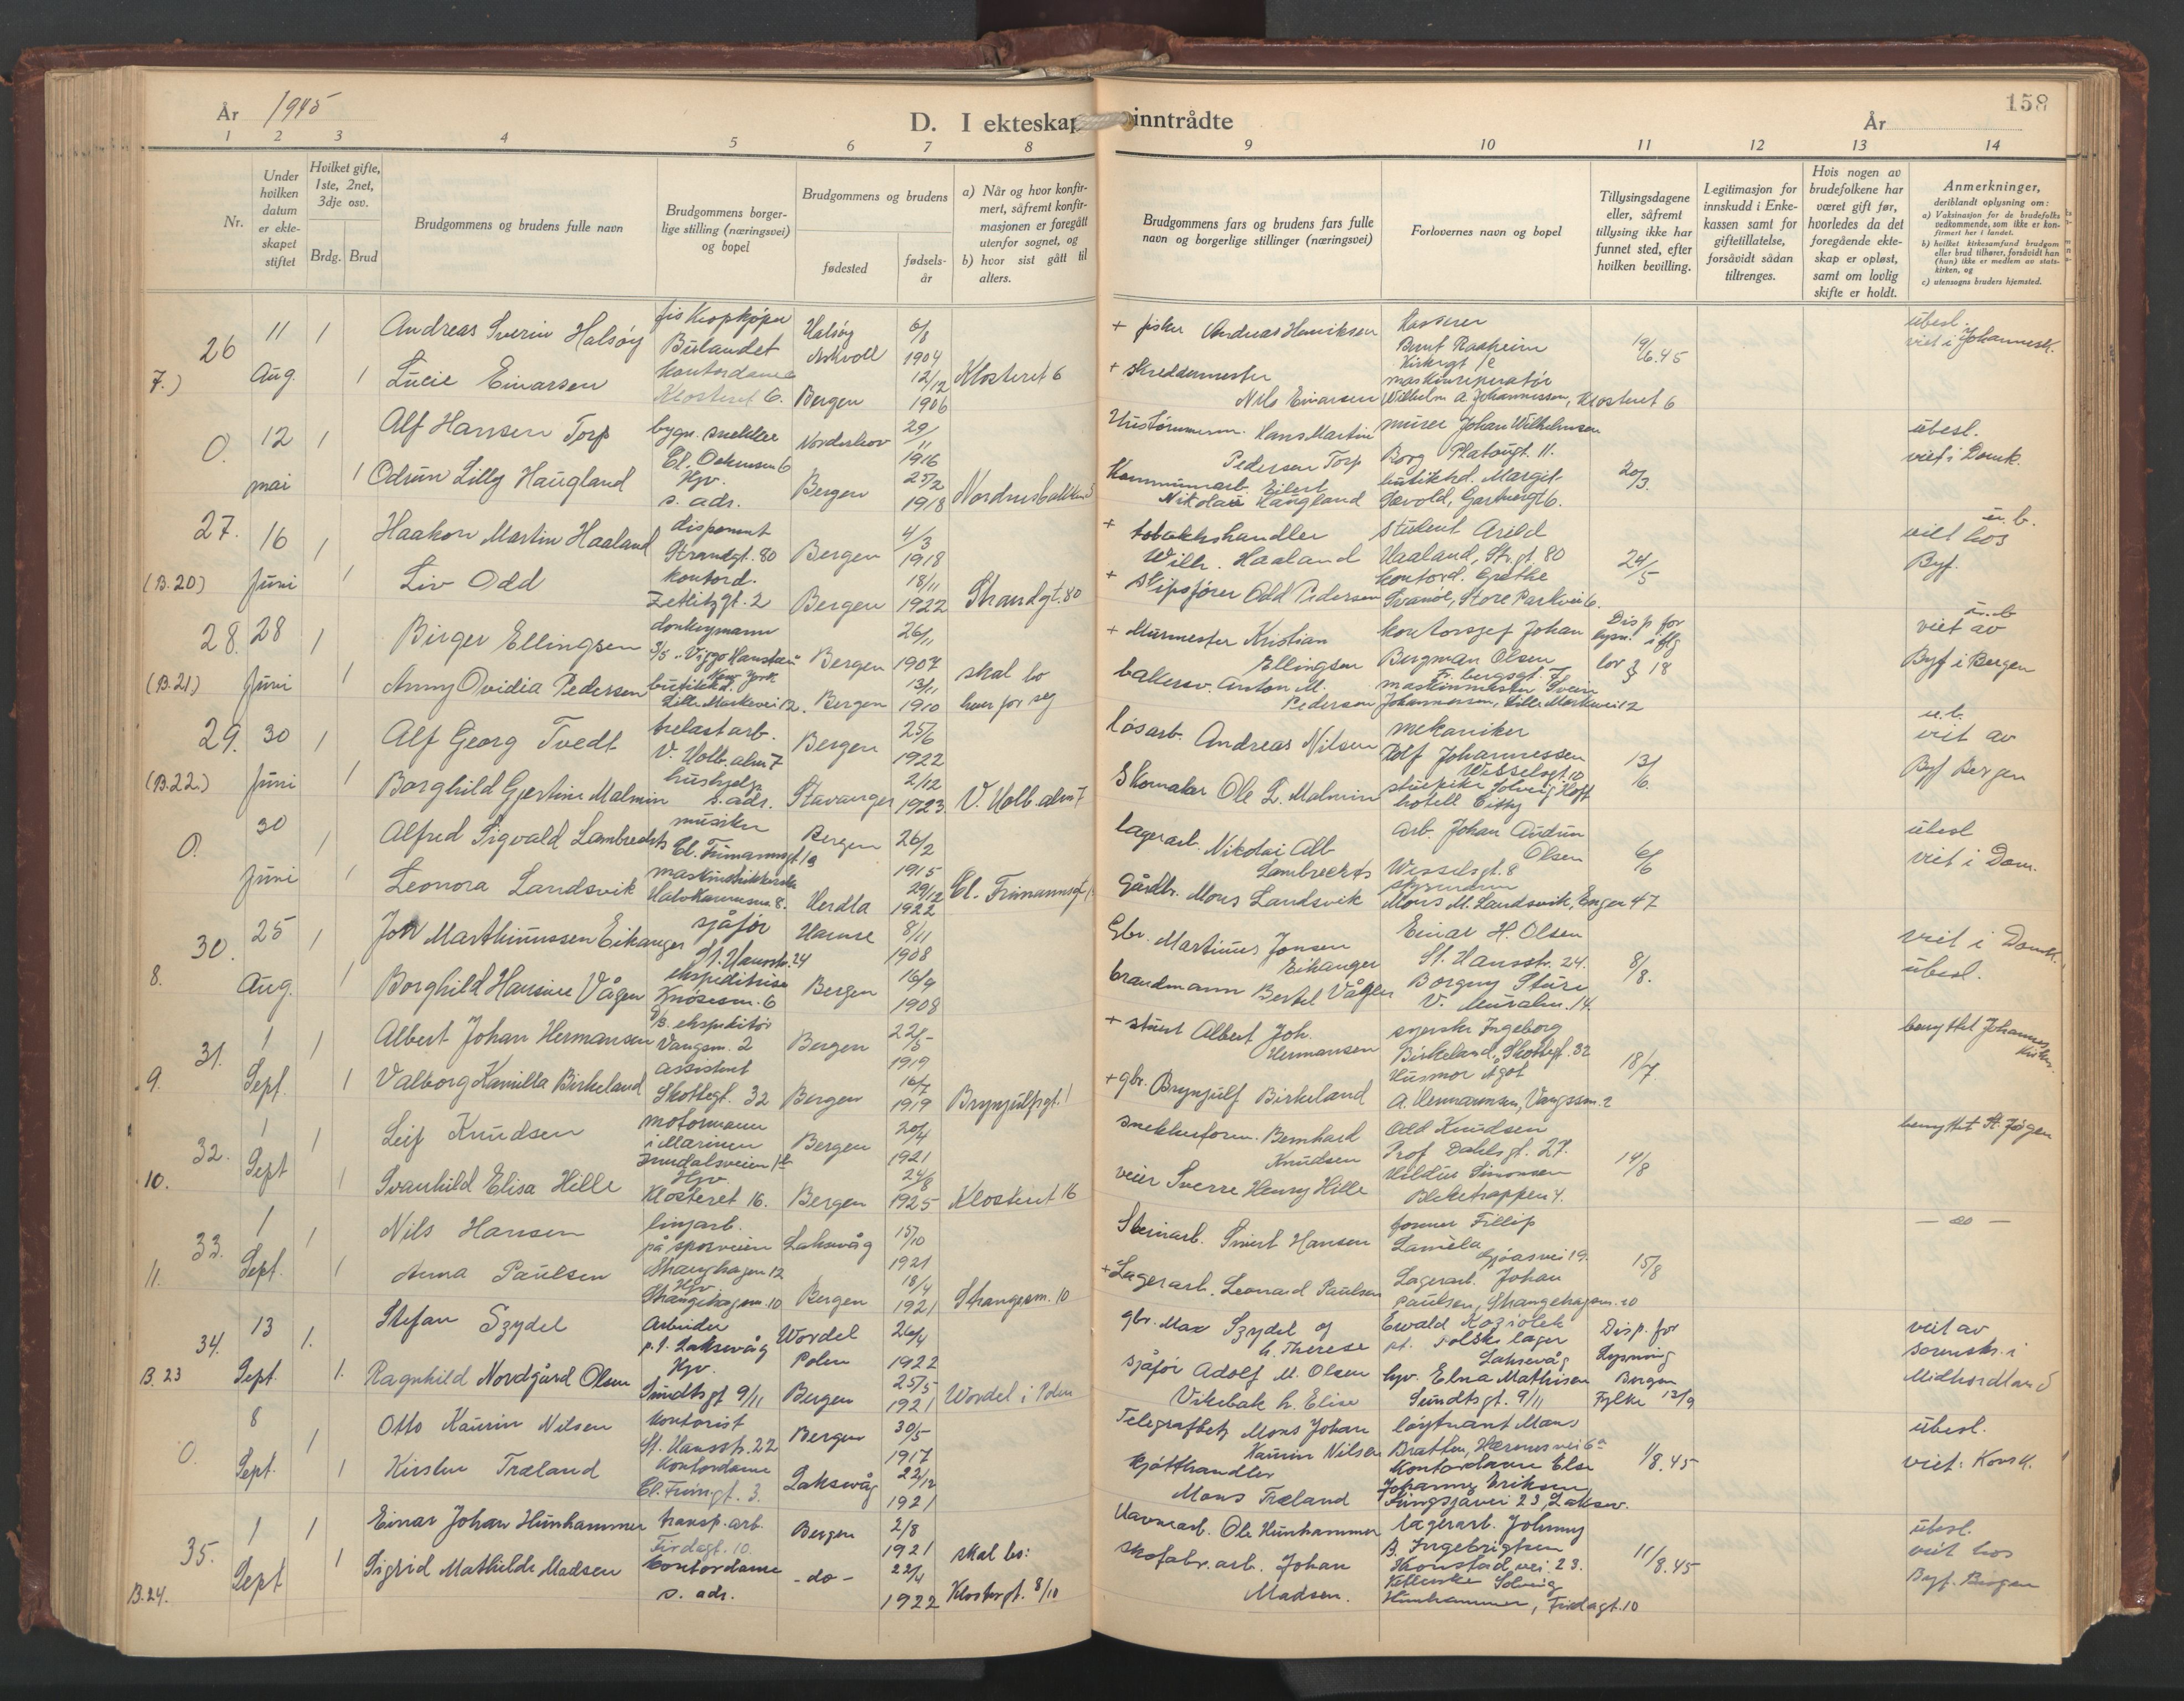 År 1945
D. I ekteskap inntrådte
158
År
1 2 3 4 5 6 7 8 9 10 11 12 13 14
Nr.
Under hvilken datum er ekteskapet stiftet
Hvilket gifte, 1ste, 2net, 3dje osv.
Brdg. Brud
Brudgommens og brudens fulle navn
Brudgommens borgerlige stilling (næringsvei) og bopel
Brudgommens og brudens
fødested
fødselsår
a) Når og hvor konfirmert, såfremt konfirmasjonen er foregått utenfor sognet, og
b) hvor sist gått til alters.
Brudgommens fars og brudens fars fulle navn og borgerlige stillinger (næringsvei)
Forlovernes navn og bopel
Tillysingsdagene eller, såfremt tillysing ikke har funnet sted, efter hvilken bevilling.
Legitimasjon for innskudd i Enkekassen samt for giftetillatelse, forsåvidt sådan tiltrenges.
Hvis nogen av brudefolkene har været gift før, hvorledes da det foregående ekteskap er opløst, samt om lovlig skifte er holdt.
Anmerkninger, deriblandt oplysning om:
a) Vaksinasjon for de brudefolks vedkommende, som ikke er konfirmert her i landet.
b) hvilket kirkesamfund brudgom eller brud tilhører, forsåvidt han (hun) ikke er medlem av statskirken, og
c) utensogns bruders hjemsted.
26 11 1 Andreas Sverin Halsøy fiskeopkjøper Bulandet Halsøy Askvoll 6/8 1904 + fisker Andreas Henriksen kasserer Bernt Raaheim 19/6.45 ubesl. viet i Johannesk.
7.) Aug. 1 Lucie Einarsen kontordame Klosteret 6. Bergen 12/12 1906 Klosteret 6 + skreddermester Nils Einarsen maskinreparatør Wilhelm A. Johannessen, Klosteret 6
0. 12 1 Alf Hansen Torp bygn. snekker Norderhov 29/11 1916 Hans Martin Pedersen Torp murer Johan Wilhelmsen Borg Platougt. 11. ubesl. viet i Domk.
mai 1 Odrun Lilly Haugland Hjv. s. adr. Bergen 25/2 1918 Kommunearb. Eilert Nikolai Haugland butikkd. Margit 20/3.
27. 16 1 Haakon Martin Haaland disponent Strandgt. 80 Bergen 4/3 1918 + tobakkshandler Wilh. Haaland student Arild Haaland, Str.gt. 80 24/5 u. b. viet hos Byf.
(B.20) Juni 1 Liv Odd kontord. Zetlitzgt. 2 Bergen 18/11 1922 Strandgt. 80 + skipsfører Odd Pedersen kontord. Grethe Svanøe, Store Parkvei 6.
28. 28 1 Birger Ellingsen donkeymann D/S "Viggo Hansteen" New York Bergen 26/11 1907 skal bo + Murmester Kristian Ellingsen kontorsjef Johan Bergman Olsen Disp for lysn. iflg lov § 18 u.b viet av Byf i Bergen
(B.21) Juni 1 Anny Ovidia Pedersen butikkd. Lille Markevei 12. Bergen 13/11 1910 hver for seg Anton M. Pedersen maskinmester Svein Johannessen, Lille Markevei 12
29. 30 1 Alf Georg Tvedt trelastarb. V. Holb. alm 7 Bergen 25/6 1922 løsarb. Andreas Nilsen mekaniker Rolf Johannessen Wesselsgt. 10 13/6. u.b. viet av Byf Bergen
(B.22.) Juni 1 Borghild Gjertine Malmin hushjelp s. adr. Stavanger 2/12 1923. V. Holb. alm 7 Skomaker Ole L. Malmin stuepike Solveig Hoff hotell
0. 30 Juni 1 Alfred Sigvald Lambrechts musiker Cl. Frimannsgt. Bergen 26/2 1915 lagerarb. Nikolai Alb Lambrechts arb. Johan Audun Olsen Wesselsgt. 8 6/6 ubesl viet i Dom.
1 Leonora Landsvik Halvkannesm. 8. Herdla 29/12 1922 Cl. Frimannsgt Gårdbr. Mons Landsvik Mons M. Landsvik, Engen 47
30. 25 1 Jon Marthinussen Eikanger sjåfør St. Hansstr. 24 Hamre 8/11 1908 Gbr. Martinus Jonsen Eikanger Einar H. Olsen St. Hansstr. 24. 8/8. viet i Domk. ubesl.
8. Aug. 1 Borghild Hansine Vågen ekspeditrise Knøsesm. 6 Bergen 16/9 1908 brandmann Bertel Vågen Borgny Sture V. Muralm. 14.
31. 1 1 Albert Johan Hermansen ekspeditør Vangsm. 2 Bergen 22/5 1919 + stuert Albert Joh. Hermansen syerske Ingeborg Birkeland, Skottegt. 32 18/7. benyttet Johannes kirken.
9. Sept. 1 Valborg Kamilla Birkeland assistent Skottegt. 32 Bergen 16/7 1919 Brynjulfsgt. 1 + gbr. Brynjulf Birkeland Husmor Ågot A. Hermansen, Vangssm. 2
32. 1 1 Leif Knudsen motormann i Marinen Bergen 20/4 1921 snekkerform. Bernhard Knudsen Odd Knudsen Prof Dahlsgt. 27. 14/8 benyttet St. Jørgen
10. Sept 1 Svanhild Elisa Hille Hjv. Klosteret 16. Bergen 24/8 1925 Klosteret 16 veier Sverre Henry Hille Hildur Simonsen Bleketrappen 4.
33. 1 1 Nils Hansen linjearb. på sporveien Stranghagen 12 Laksevåg 15/10 1921 Steinarb. Sivert Hansen former Fillip Lamela Gjøasvei 19. 15/8 — do —
11. Sept. 1 Anna Paulsen Hjv Strangehagen. 10 Bergen 18/4 1921 Strangesm. 10 + Lagerarb. Leonard Paulsen Lagerarb. Johan Paulsen, Strangehagen. 10
34. 13 1. Stefan Szydel Arbeider p.t. Laksevåg Wordel Polen 26/4 1922 gbr. Max Szydel og h. Therese Ewald Koziolek pt. Polsk lager Laksevåg Disp. for Lysning viet av sorensk. i Midhordland
B. 23 Sept. 1. Ragnhild Nordgård Olsen Hjv. Sundtsgt 9/11 Bergen 25/5 1921 Wordel i Polen sjåfør Adolf M. Olsen Vikebak h. Elise hjv. Elna Mathisen Sundtsgt. 9/11 Bergen Fylke 12/9
0. 8 1 Otto Kaurin Nilsen kontorist St. Hansstr. 22 Bergen 30/5 1917 Telegrafbetj Mons Johan Kaurin Nilsen løytnant Mons Bratten, 1/8.45 ubesl. viet: Korsk.
Sept. 1 Kirsten Træland kontordame Cl. Frim.gt. 3. Laksevåg 22/12 1921 kjøtthandler Mons Træland kontordame Else Johanne Eriksen
35. 1 1 Einar Johan Hunhammer transp. arb. Firdagt. 10. Bergen 2/8 1921 skal bo: Havnearb. Ole Hunhammer lagerarb. Johnny B. Ingebrigtsen Konstad.vei. 23. 11/8.45 ubesl. viet hos Byf. Bergen
B.24. Sept 1 Sigrid Mathilde Madsen kontordame s. adr. - do - 22/4 1922 Klostergt. 8/10 skofabr. arb. Johan Madsen. Solveig Hunhammer, Firdagt. 10